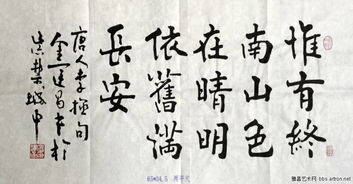 惟有終
南山色
在晴明
依舊滿
長安
唐人李拯句
雅昌艺术网 bbs.artron.net